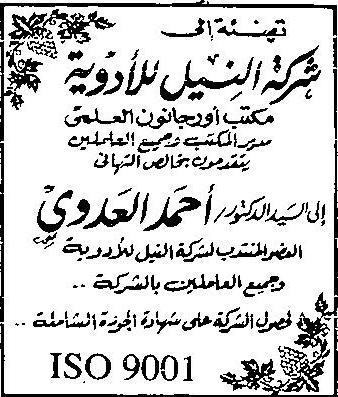 تهنئة إلى
شركة النيل للأدوية
مكتب أورجانون العلمى
مدير المكتب وجميع العاملين
يتقدمون بخالص التهانى
إلى السيد الدكتور/ أحمد العدوي
العضو المنتدب لشركة النيل للأدوية
وجميع العاملين بالشركة ..
لحصول الشركة على شهادة الجودة الشاملة ..
ISO 9001